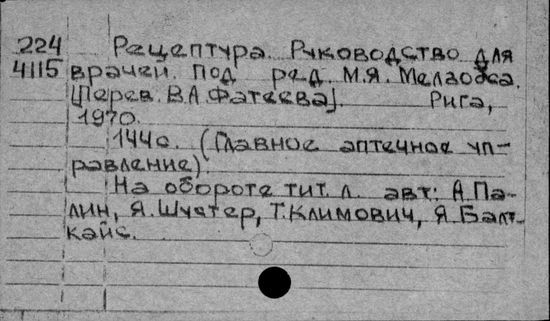 224 Рецептура. Руководство для
4115 врачей. Под ред. М.Я. Мелзобса.
[Перев. В.А. Фатеева]. Рига,
1970.
144с. (Главное аптечное уп-
равление).
На обороте тит. л. авт: А.Па-
лин, Я.Шустер, Т.Климович, Я.Балт-
кайс.